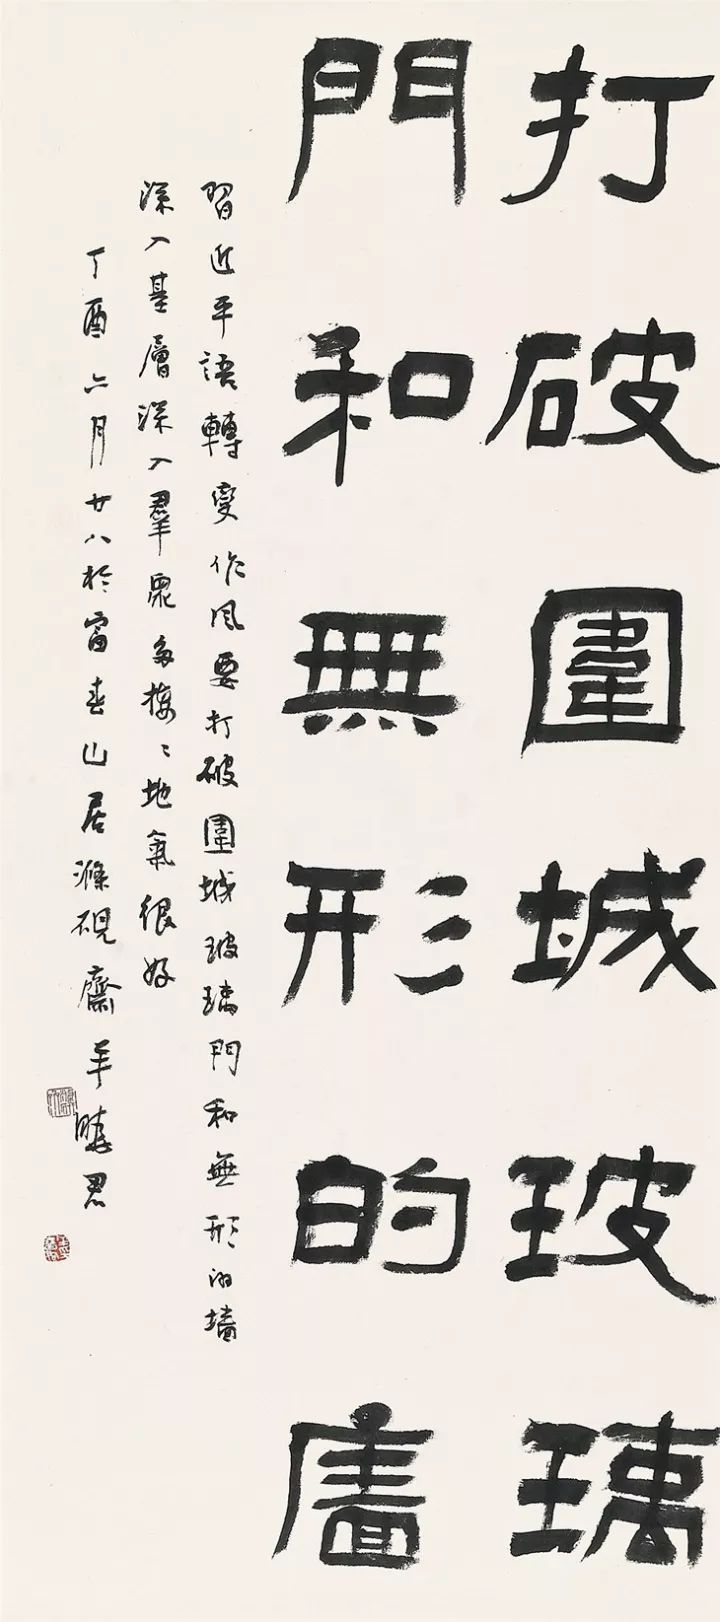 打破圍城玻璃
門和無形的廧
習近平語轉變作風要打破圍城玻璃門和無形的墻
深入基層深入羣眾多接〻地氣很好
丁酉六月廿八於富春山居滌硯齋羊曉君